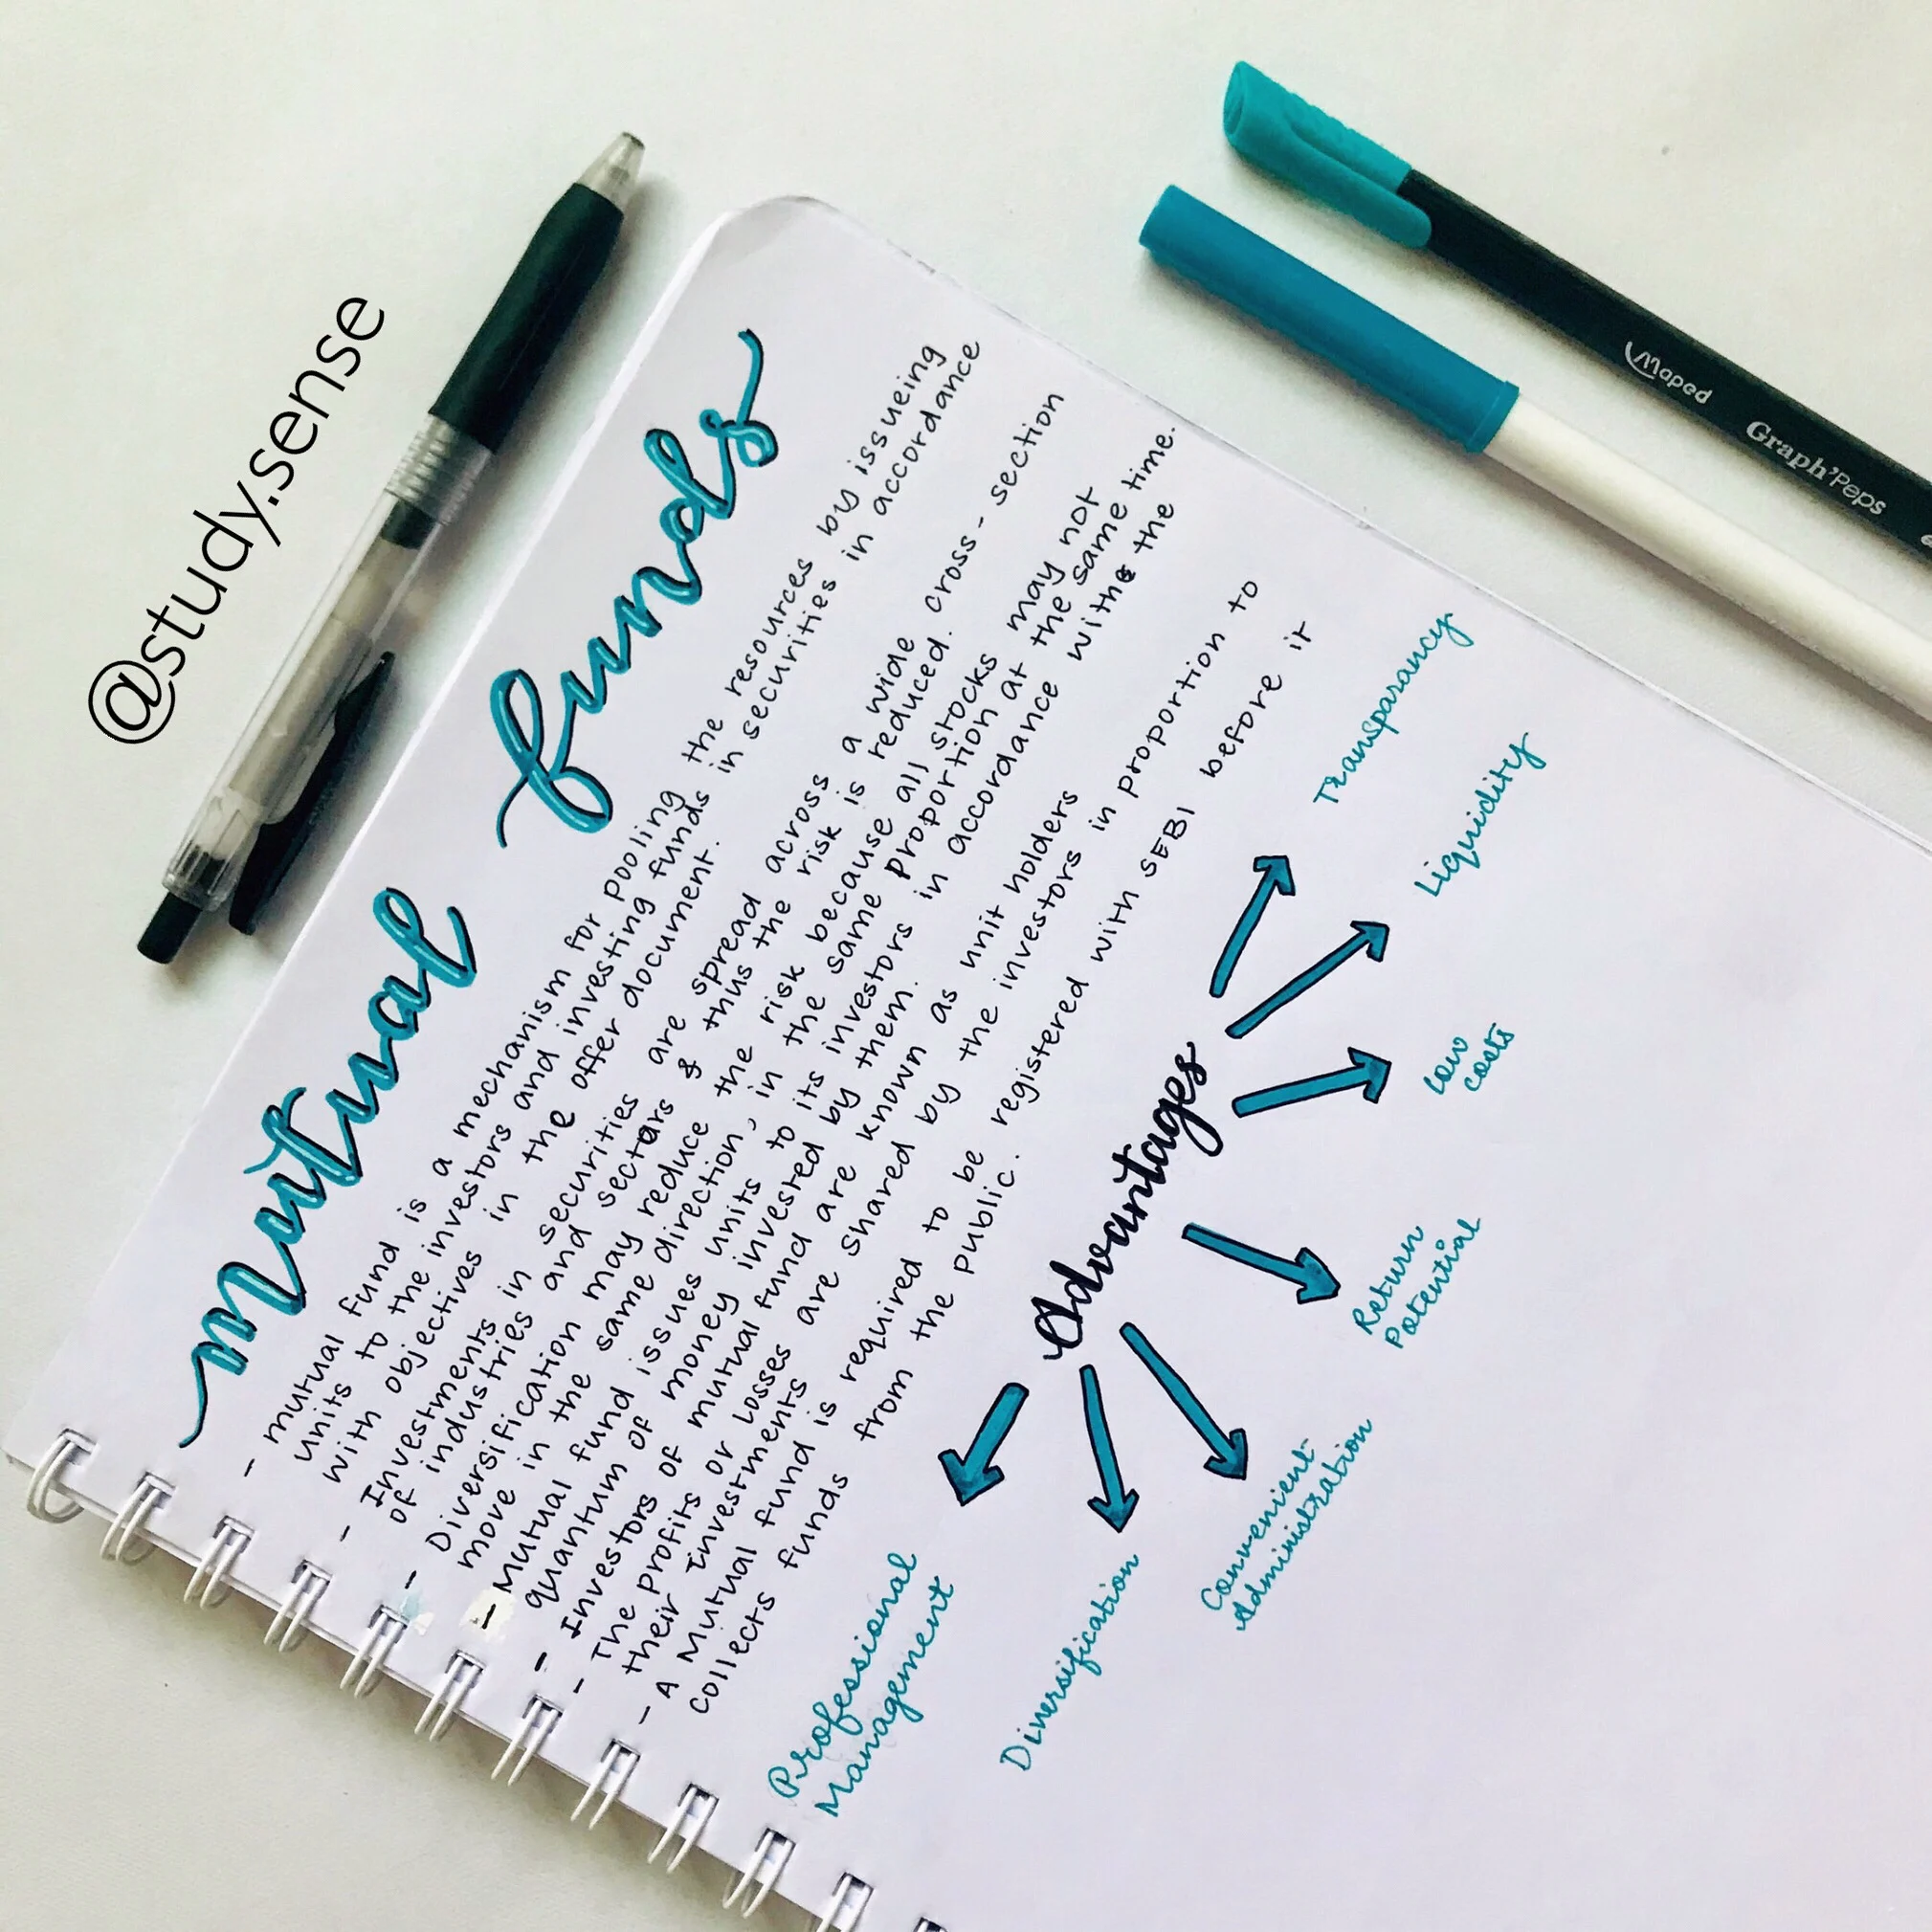 @study.sense
mutual funds
- mutual fund is a mechanism for pooling the resources by issueing
units to the investors and investing funds in securities in accordance
with objectives in the offer document.
- Investments in securities are spread across a wide cross-section
of industries and sectors & thus the risk is reduced.
- Diversification may reduce the risk because all stocks may not
move in the same direction, in the same proportion at the same time.
- Mutual fund issues units to its investors in accordance with the
quantum of money invested by them.
- Investors of mutual fund are known as unit holders
- The profits or losses are shared by the investors in proportion to
their Investments
- A Mutual fund is required to be registered with SEBI before it
collects funds from the public.
Advantages
Professional
Management
Diversification
Convenient
Administration
Return
Potential
Low
costs
Liquidity
Transparancy
Maped Graph'Peps